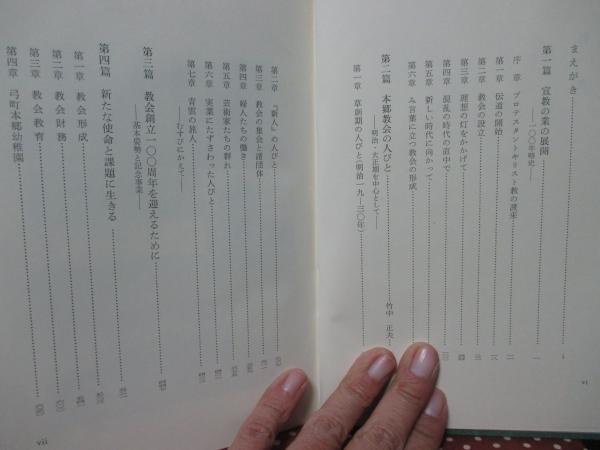 まえがき
第一篇 宣教の業の展開
――一〇〇年略史――
序章 プロテスタントキリスト教の渡来
第一章 伝道の開始
第二章 教会の設立
第三章 理想の灯をかかげて
第四章 混乱の時代の直中で
第五章 新しい時代に向かって
第六章 み言葉に立つ教会の形成
第二篇 本郷教会の人びと
――明治・大正期を中心として――
竹中 正夫
第一章 草創期の人びと(明治一九―三〇年)
vi
第二章 『新人』の人びと
第三章 教会の集会と諸団体
第四章 婦人たちの働き
第五章 芸術家たちの群れ
第六章 実業にたずさわった人びと
第七章 青雲の旅人
――むすびにかえて――
第三篇 教会創立一〇〇周年を迎えるために
――基本姿勢と記念事業――
第四篇 新たな使命と課題に生きる
第一章 教会形成
第二章 教会財務
第三章 教会教育
第四章 弓町本郷幼稚園
vii